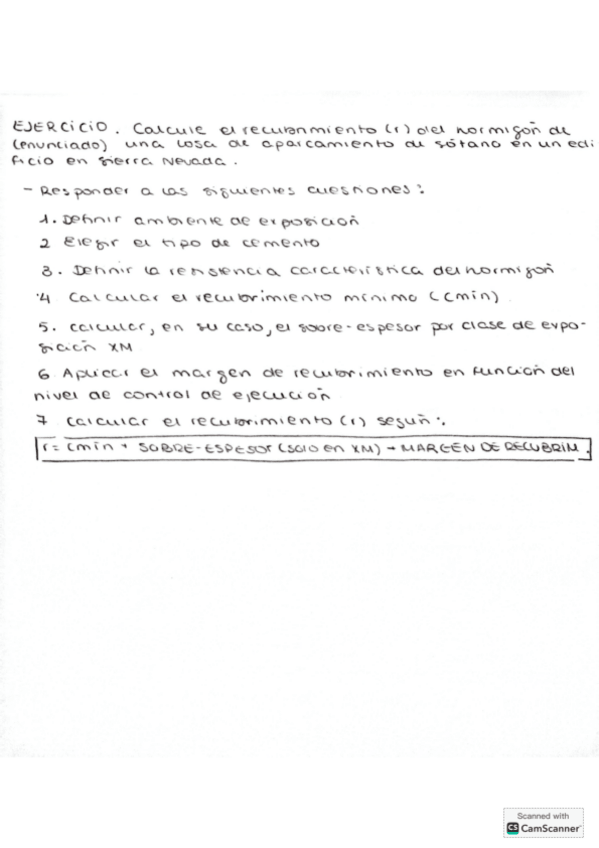 EJERCICIO. Calcule el recubrimiento (r) del hormigón de
(enunciado) una losa de aparcamiento de sótano en un edi
ficio en Sierra Nevada.
- Responder a las siguientes cuestiones:
1. Definir ambiente de exposición
2 Elegir el tipo de cemento
3. Definir la resistencia característica del hormigón
4 Calcular el recubrimiento mínimo (Cmín)
5. Calcular, en su caso, el sobre-espesor por clase de expo-
sición XM
6 Aplicar el margen de recubrimiento en función del
nivel de control de ejecución
7 Calcular el recubrimiento (r) según:
r = Cmín + SOBRE-ESPESOR (solo en XM) + MARGEN DE RECUBRIM.
Scanned with
CS CamScanner